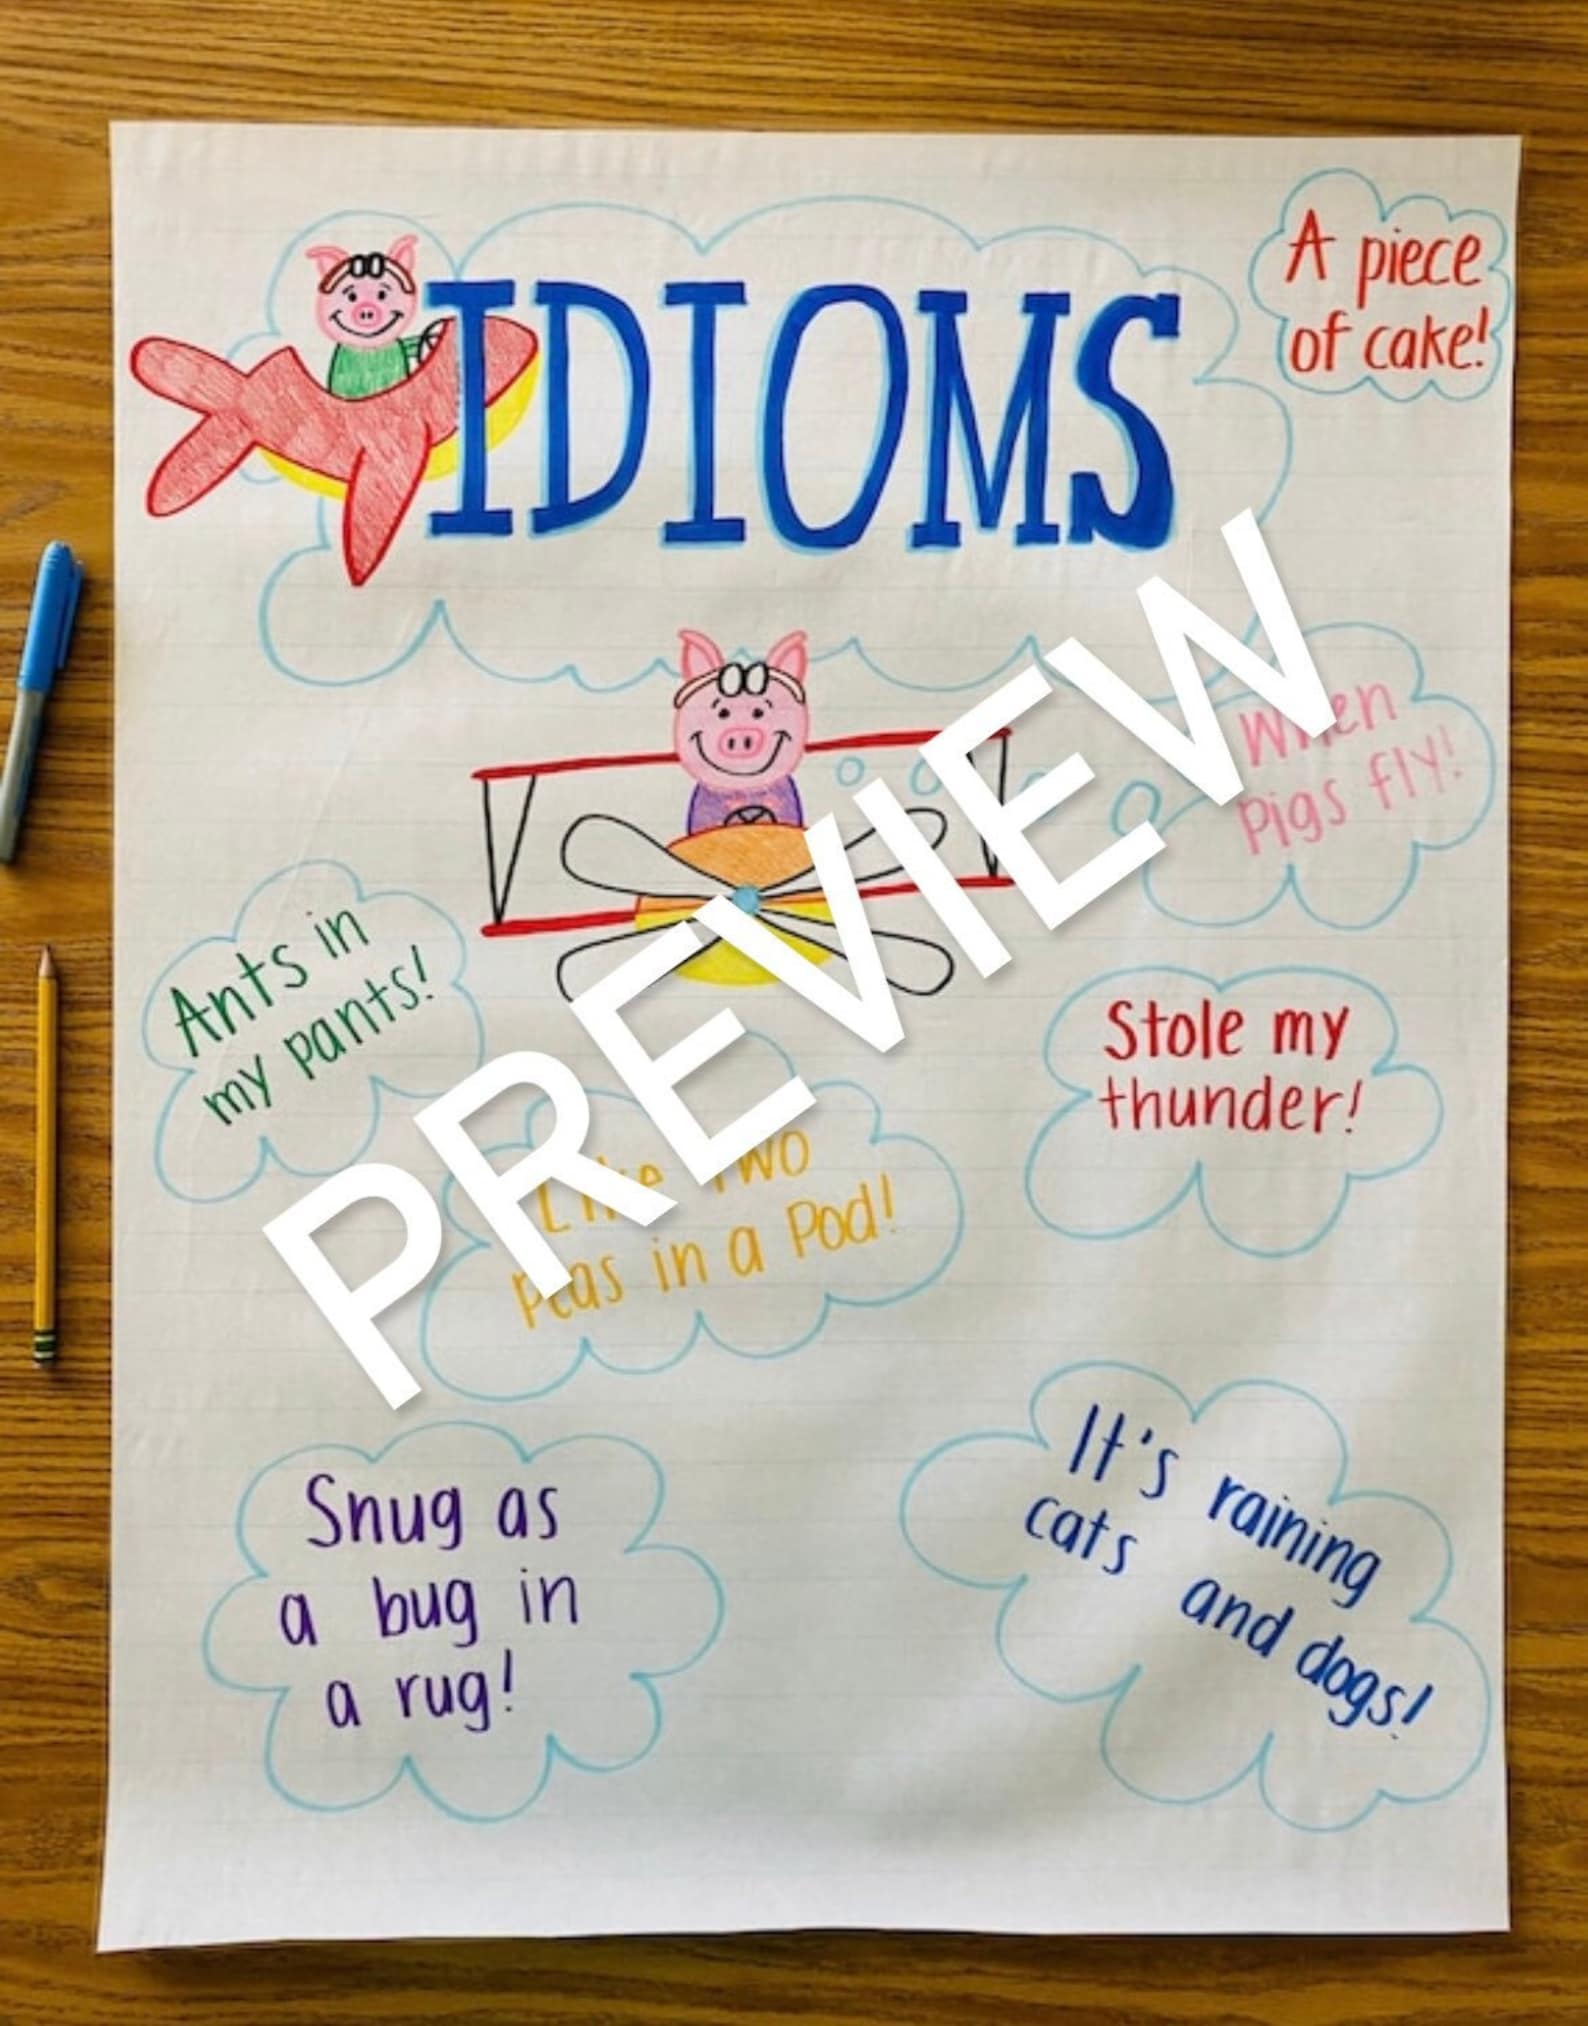 IDIOMS
A piece
of cake!
When
pigs fly!
Ants in
my pants!
Stole my
thunder!
Like Two
peas in a Pod!
Snug as
a bug in
a rug!
It's raining
cats and dogs!
PREVIEW